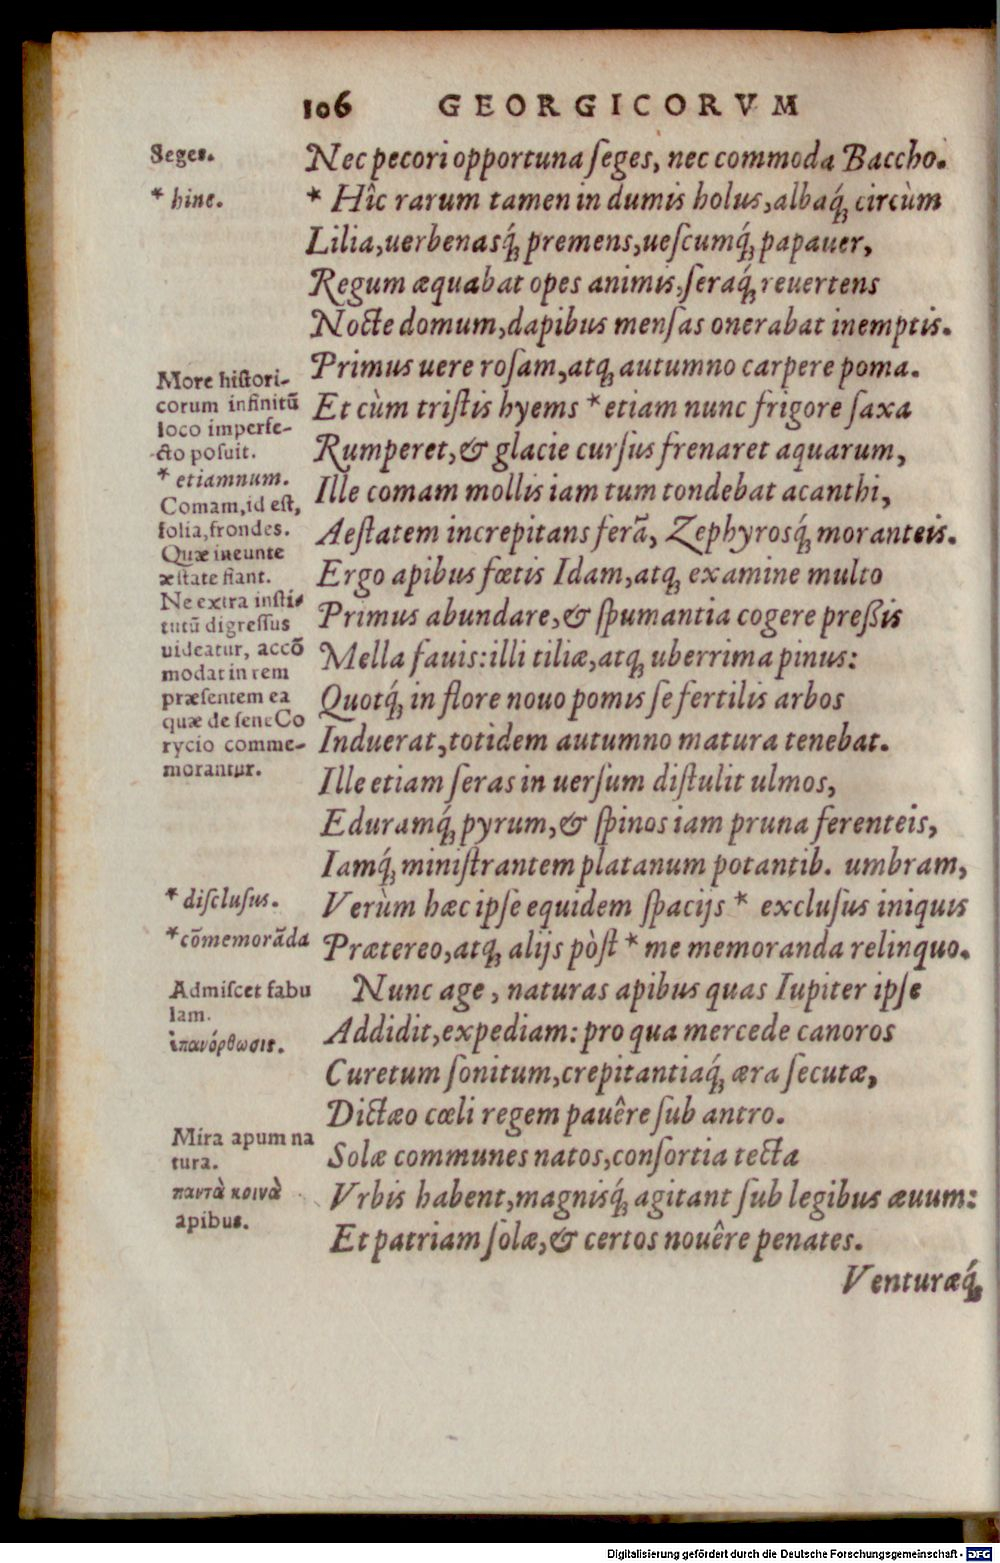 106 GEORGICORVM
Seges.
* hinc.
More histori-
corum infinitũ
loco imperfe-
cto posuit.
* etiamnum.
Comam,id est,
folia,frondes.
Quæ ineunte
æstate fiant.
Ne extra insti-
tutũ digressus
uideatur, accõ
modat in rem
præsentem ea
quæ de sene Co
rycio comme-
morantur.
* disclusus.
*cõmemorãda
Admiscet fabu
lam.
ἐπανόρθωσις.
Mira apum na
tura.
παντὰ κοινὰ
apibus.
Nec pecori opportuna seges, nec commoda Baccho.
* Hîc rarum tamen in dumis holus,albaq́; circùm
Lilia,uerbenasq́; premens,uescumq́; papauer,
Regum æquabat opes animis,seraq́; reuertens
Nocte domum,dapibus mensas onerabat inemptis.
Primus uere rosam,atq; autumno carpere poma.
Et cùm tristis hyems * etiam nunc frigore saxa
Rumperet,& glacie cursus frenaret aquarum,
Ille comam mollis iam tum tondebat acanthi,
Aestatem increpitans serã, Zephyrosq́; moranteis.
Ergo apibus fœtis Idam,atq; examine multo
Primus abundare,& spumantia cogere preßis
Mella fauis:illi tiliæ,atq; uberrima pinus:
Quotq́; in flore nouo pomis se fertilis arbos
Induerat,totidem autumno matura tenebat.
Ille etiam seras in uersum distulit ulmos,
Eduramq́; pyrum,& spinos iam pruna ferenteis,
Iamq́; ministrantem platanum potantib. umbram,
Verùm hæc ipse equidem spacijs * exclusus iniquis
Prætereo,atq; alijs pòst * me memoranda relinquo.
Nunc age, naturas apibus quas Iupiter ipse
Addidit,expediam: pro qua mercede canoros
Curetum sonitum,crepitantiaq́; æra secutæ,
Dictæo cœli regem pauêre sub antro.
Solæ communes natos,consortia tecta
Vrbis habent,magnisq́; agitant sub legibus æuum:
Et patriam solæ,& certos nouêre penates.
Venturæq́;
Digitalisierung gefördert durch die Deutsche Forschungsgemeinschaft - DFG